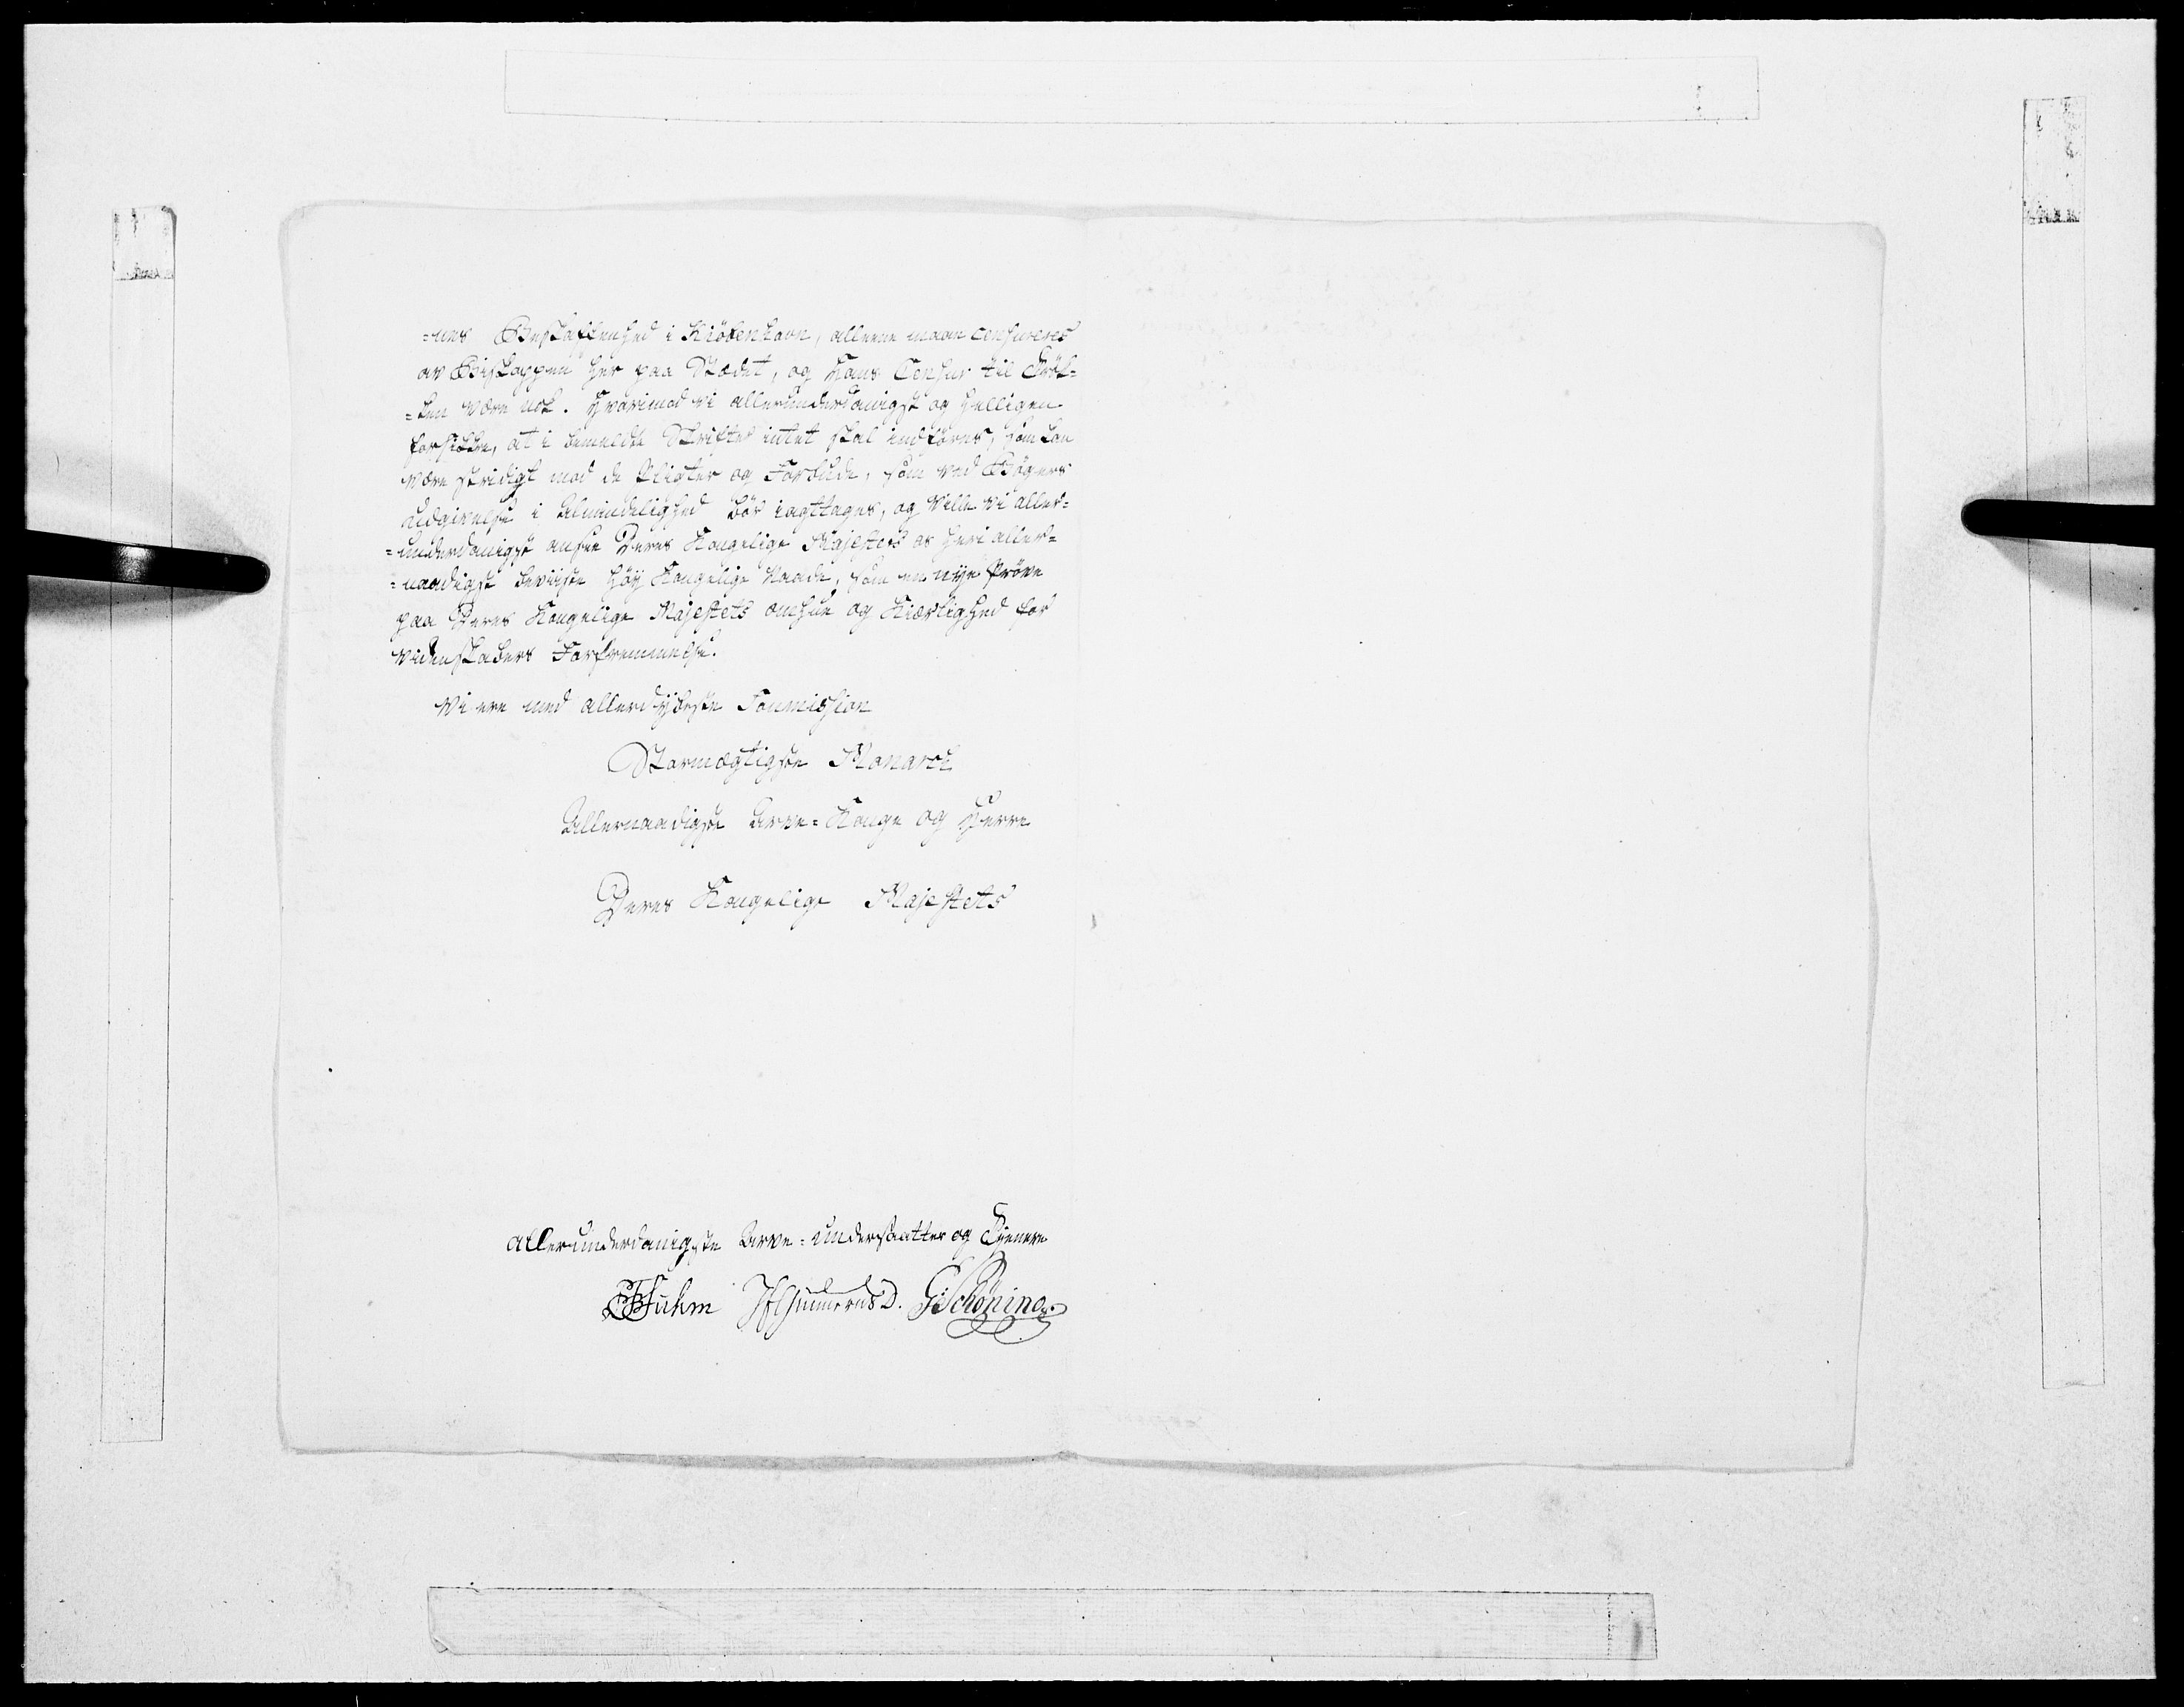 =nes Beskaffenhed i Kiöbenhavn, alleene maae censureres
av Biskoppen her paa Stædet, og hans Censur til Tryk=
=ken være nok. Hvorimod vi allerunderdanigst og helligen
forsikkre, at i bemeldte Skrifter intet skal indföres, som kan
være stridigt mod de Pligter og Forbude, som ved Bögers
Udgivelse i Almindelighed bör iagttages, og ville vi aller=
=underdanigst ansee Deres Kongelige Majestets os heri aller=
=naadigst beviiste höy Kongelige Naade, som en nye Pröve
paa Deres Kongelige Majestets omhue og Kiærlighed for
Videnskabers Forfremmelse.
Vi ere med allerdybeste Soumission
Stormægtigste Monarch
Allernaadigste Arve=Konge og Herre
Deres Kongelige Majestets
allerunderdanigste Arve=undersaatter og Tienere
PFSuhm JEGunnerus D. G: Schöning.